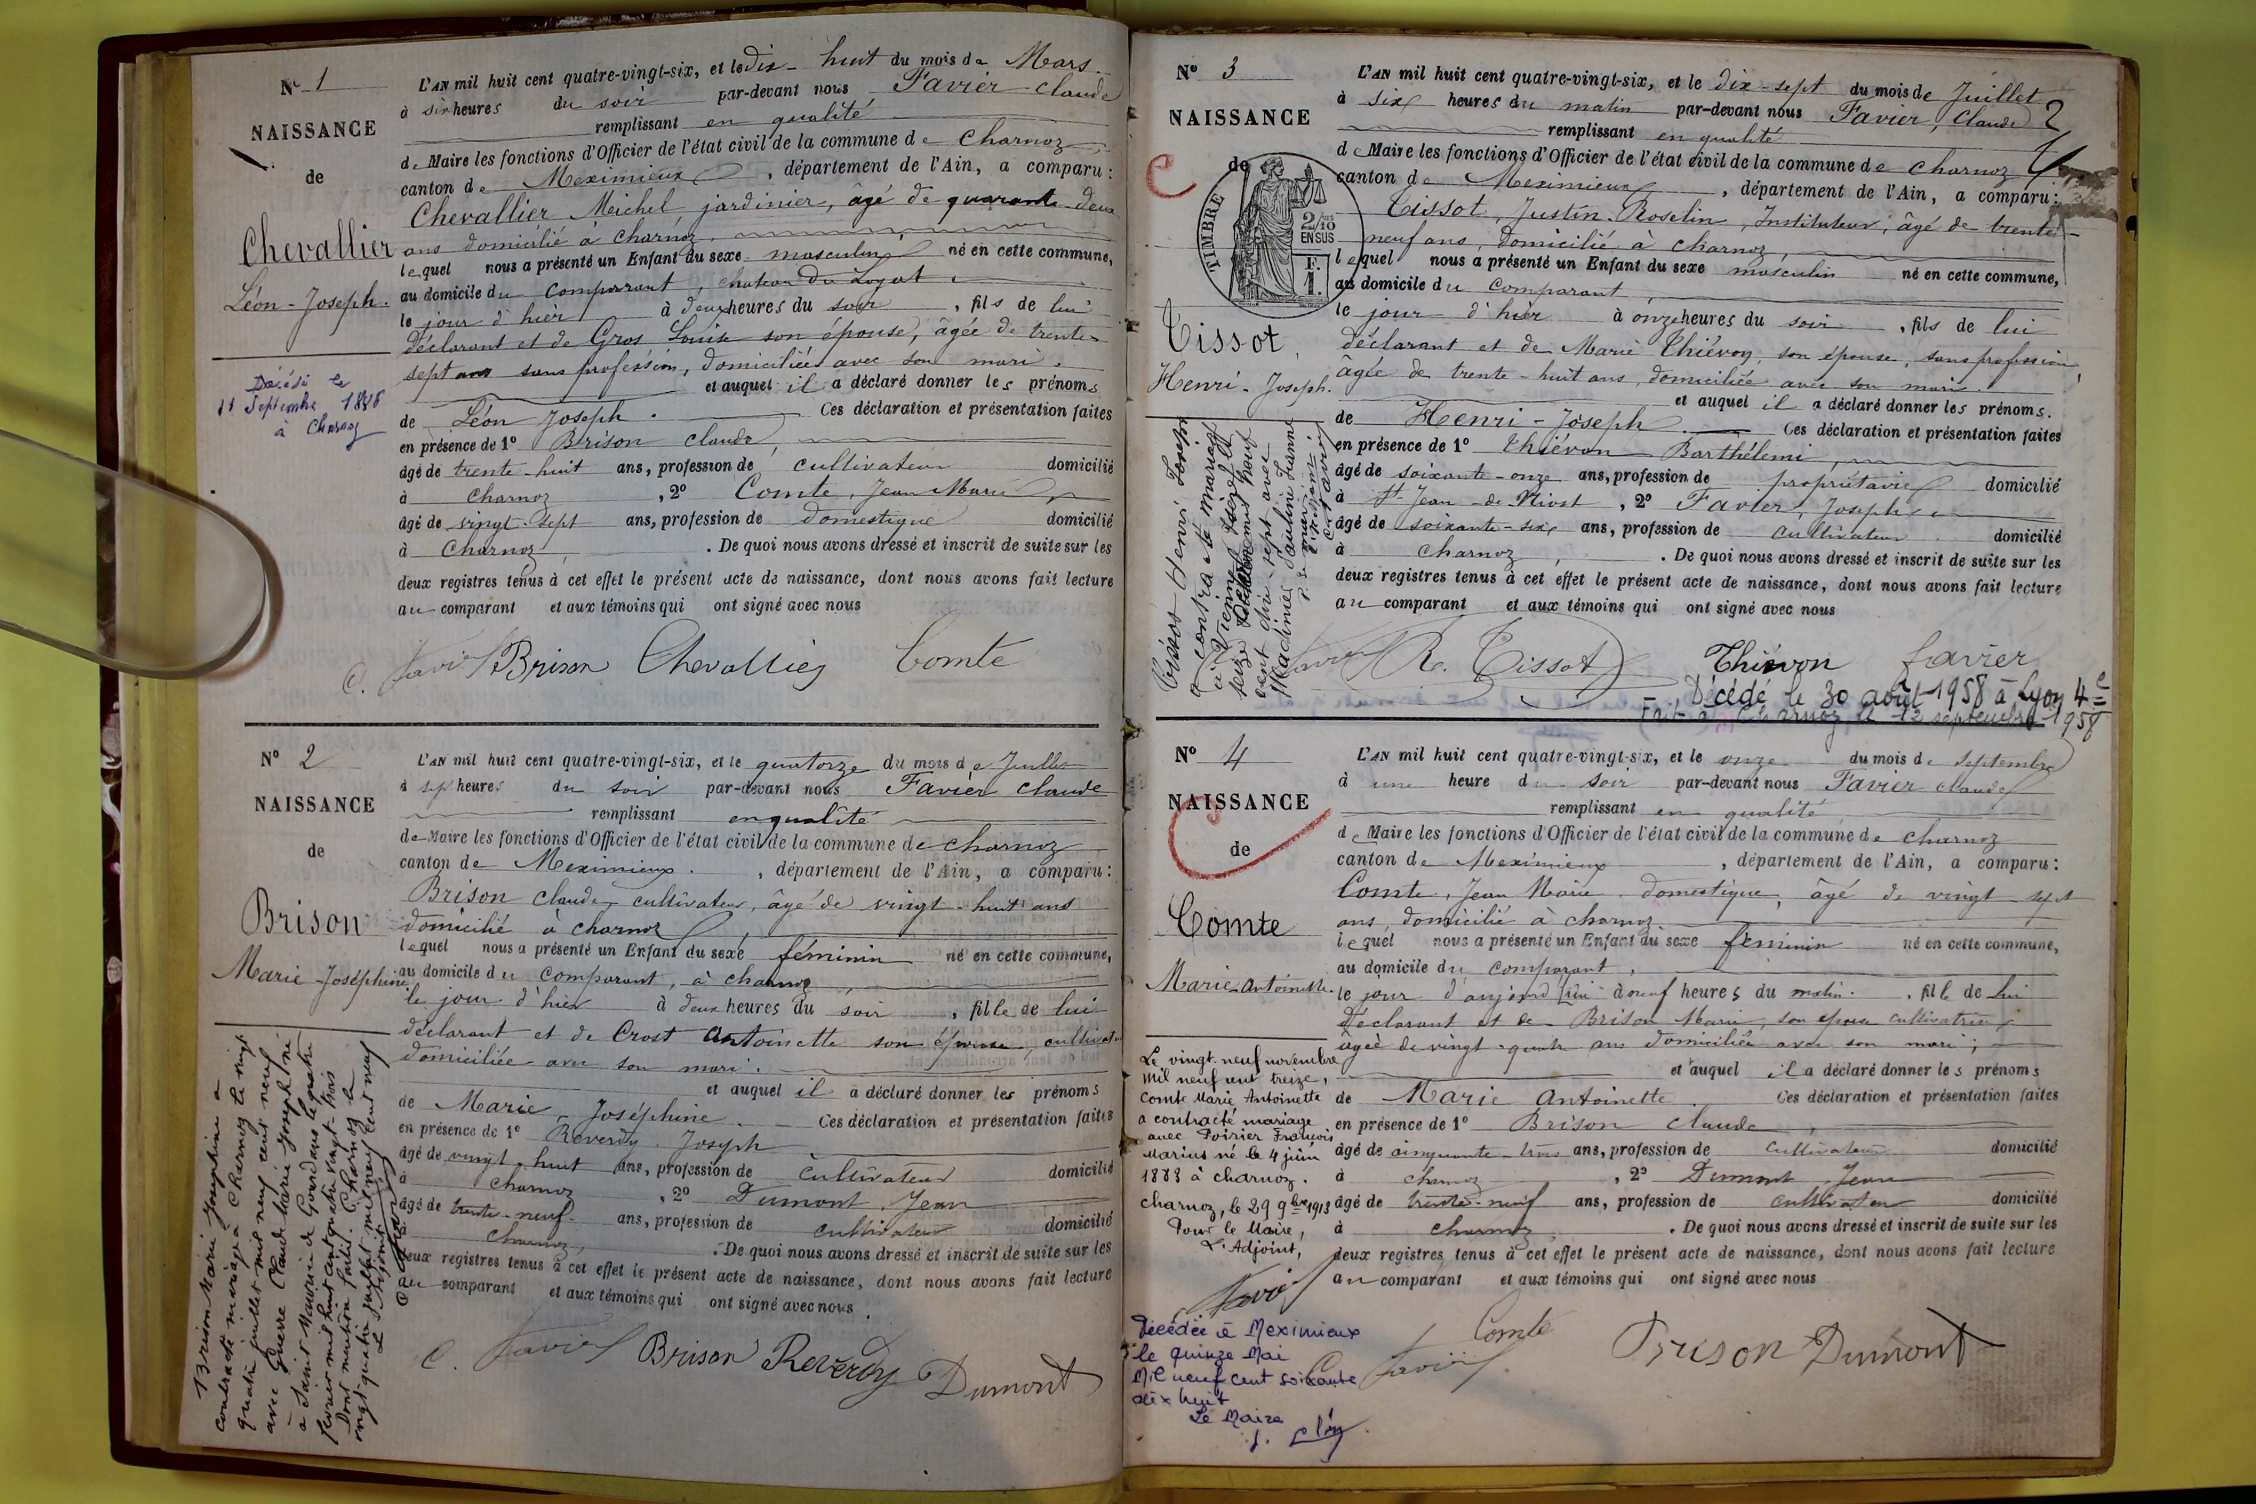 N° 1
NAISSANCE
de
Chevallier
Léon - Joseph.
Décédé le
11 Septembre 1886
à Charnoz
L'AN mil huit cent quatre-vingt-six, et le dix-huit du mois de Mars
à six heures du soir par-devant nous Favier Claude
remplissant en qualité
de Maire les fonctions d'Officier de l'état civil de la commune de Charnoz
canton de Meximieux, département de l'Ain, a comparu:
Chevallier Michel, jardinier, âgé de quarante-deux
ans domicilié à Charnoz,
lequel nous a présenté un Enfant du sexe masculin né en cette commune,
au domicile du comparant, chateau du
le jour d'hier à deux heures du soir, fils de lui
déclarant et de Gros Louise son épouse, âgée de trente-
sept ans sans profession, domiciliée avec son mari.
et auquel il a déclaré donner les prénoms
de Léon Joseph. Ces déclaration et présentation faites
en présence de 1° Brison Claude,
âgé de trente-huit ans, profession de cultivateur domicilié
à Charnoz, 2° Comte, Jean Marie
âgé de vingt-sept ans, profession de domestique domicilié
à Charnoz, . De quoi nous avons dressé et inscrit de suite sur les
deux registres tenus à cet effet le présent acte de naissance, dont nous avons fait lecture
au comparant et aux témoins qui ont signé avec nous
C. Favier Brison Chevallier Comte
N° 2
NAISSANCE
de
Brison
Marie-Joséphine
Brison Marie Joséphine a
contracté mariage à Charnoz le vingt
quatre juillet mil neuf cent neuf
avec Guerre Claude Marie Joseph né
à Saint Maurice de Gourdans le quatre
février mil huit cent quatre vingt-trois
Dont mention faite. Charnoz le
vingt-quatre juillet mil neuf cent neuf
L'Adjoint
L'AN mil huit cent quatre-vingt-six, et le quatorze du mois de Juillet
à sept heures du soir par-devant nous Favier Claude
remplissant en qualité
de Maire les fonctions d'Officier de l'état civil de la commune de Charnoz
canton de Meximieux. , département de l'Ain, a comparu:
Brison Claude, cultivateur, âgé de vingt-huit ans
domicilié à Charnoz,
lequel nous a présenté un Enfant du sexe féminin né en cette commune,
au domicile du comparant, à Charnoz
le jour d'hier à deux heures du soir, fille de lui
déclarant et de Crost Antoinette son épouse, cultivat
domiciliée avec son mari.
et auquel il a déclaré donner les prénoms
de Marie, Joséphine. Ces déclaration et présentation faites
en présence de 1° Reverdy Joseph
âgé de vingt huit ans, profession de cultivateur domicilié
à Charnoz, 2° Dumont Jean
âgé de trente-neuf ans, profession de cultivateur domicilié
à Charnoz, . De quoi nous avons dressé et inscrit de suite sur les
deux registres tenus à cet effet le présent acte de naissance, dont nous avons fait lecture
au comparant et aux témoins qui ont signé avec nous
C. Favier Brison Reverdy Dumont
N° 3
NAISSANCE
de
TIMBRE
2/10
EN SUS
F.
1.
Tissot,
Henri-Joseph.
Tissot Henri Joseph
a contracté mariage
à Vienne (Isère) le
seize mil neuf
cent dix-sept avec
Madinier Pauline Jeanne
L'AN mil huit cent quatre-vingt-six, et le dix-sept du mois de Juillet 2
à six heures du matin par-devant nous Favier, Claude
remplissant en qualité
de Maire les fonctions d'Officier de l'état civil de la commune de Charnoz
canton de Meximieux, département de l'Ain, a comparu:
Tissot, Justin-Roselin, Instituteur, âgé de trente-
neuf ans, domicilié à Charnoz,
lequel nous a présenté un Enfant du sexe masculin né en cette commune,
au domicile du comparant,
le jour d'hier à onze heures du soir, fils de lui
déclarant et de Marie Thiévon, son épouse, sans profession,
âgée de trente-huit ans, domiciliée avec son mari.
et auquel il a déclaré donner les prénoms.
de Henri-Joseph. Ces déclaration et présentation faites
en présence de 1° Thiévon Barthélemi,
âgé de soixante-onze ans, profession de propriétaire domicilié
à St-Jean-de-Niost, 2° Favier, Joseph,
âgé de soixante-six ans, profession de cultivateur domicilié
à Charnoz, . De quoi nous avons dressé et inscrit de suite sur les
deux registres tenus à cet effet le présent acte de naissance, dont nous avons fait lecture
au comparant et aux témoins qui ont signé avec nous
Favier R. Tissot Thiévon Favier
Décédé le 30 août 1958 à Lyon 4e
Fait à Charnoz le 12 septembre 1958
N° 4
NAISSANCE
de
Comte
Marie-Antoinette.
Le vingt-neuf novembre
mil neuf cent treize,
Comte Marie Antoinette
a contracté mariage
avec Poirier François
Marius né le 4 juin
1883 à Charnoz.
Charnoz, le 29 9bre 1913
Pour le Maire,
L'Adjoint,
Favier
Décédée à Meximieux
le quinze Mai
Mil neuf cent soixante
dix huit
Le Maire
L'AN mil huit cent quatre-vingt-six, et le onze du mois de Septembre
à une heure du soir par-devant nous Favier Claude
remplissant en qualité
de Maire les fonctions d'Officier de l'état civil de la commune de Charnoz
canton de Meximieux, département de l'Ain, a comparu:
Comte, Jean Marie domestique, âgé de vingt sept
ans, domicilié à Charnoz
lequel nous a présenté un Enfant du sexe féminin né en cette commune,
au domicile du comparant,
le jour d'aujourd'hui à neuf heures du matin. , fille de lui
Déclarant et de Brison Marie, son épouse cultivatrice,
âgée de vingt-quatre ans domiciliée avec son mari;
et auquel il a déclaré donner les prénoms
de Marie Antoinette. Ces déclaration et présentation faites
en présence de 1° Brison Claude,
âgé de cinquante-trois ans, profession de cultivateur domicilié
à Charnoz, 2° Dumont Jean
âgé de trente-neuf ans, profession de cultivateur domicilié
à Charnoz, . De quoi nous avons dressé et inscrit de suite sur les
deux registres tenus à cet effet le présent acte de naissance, dont nous avons fait lecture
au comparant et aux témoins qui ont signé avec nous
C. Favier Comte Brison Dumont